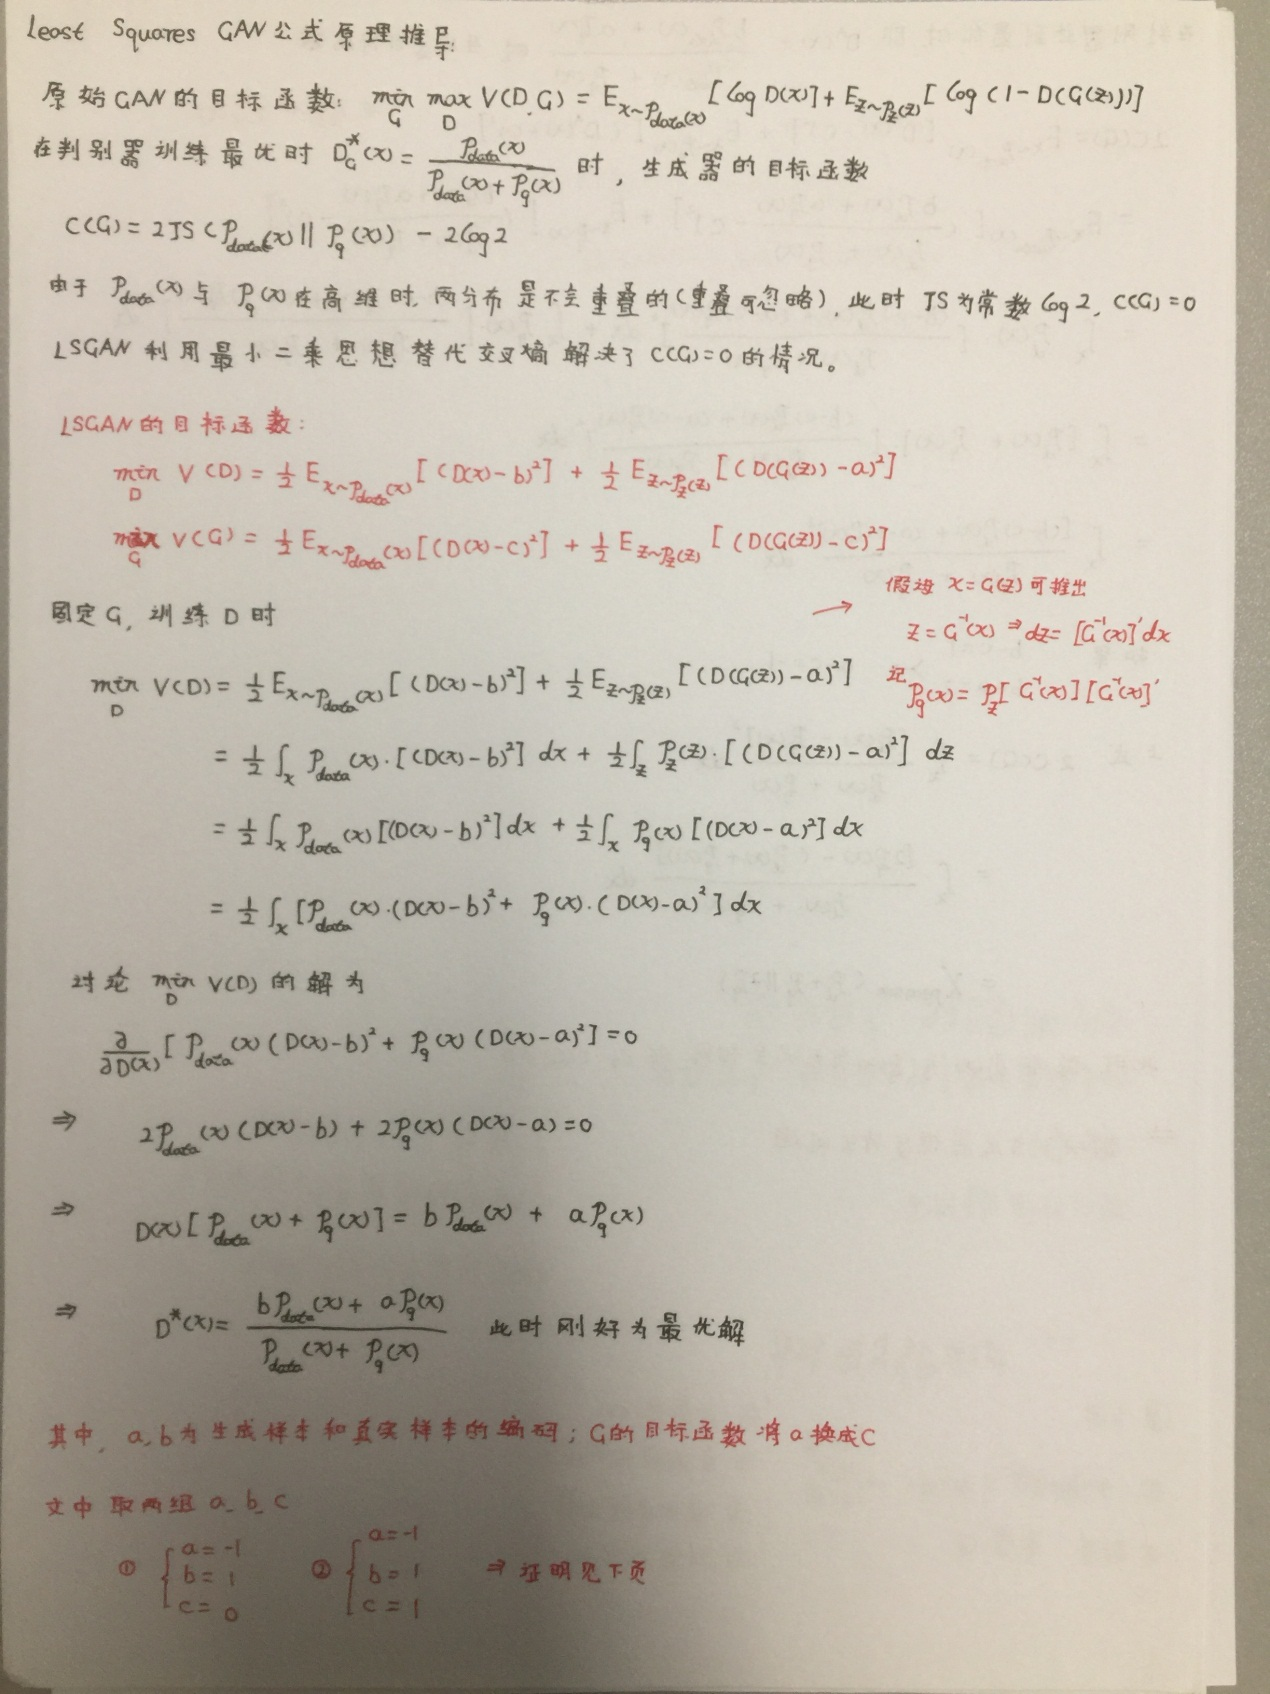 Least Squares GAN公式原理推导:
原始GAN的目标函数: min_G max_D V(D,G) = E_{x~P_data(x)}[log D(x)] + E_{z~P_z(z)}[log(1-D(G(z)))]
在判别器训练最优时 D_G^*(x) = P_data(x) / (P_data(x)+P_g(x)) 时，生成器的目标函数
C(G) = 2JS(P_data(x)||P_g(x)) - 2log2
由于 P_data(x) 与 P_g(x) 在高维时,两分布是不会重叠的(重叠可忽略),此时 JS为常数 log2, C(G)=0
LSGAN 利用最小二乘思想替代交叉熵 解决了 C(G)=0 的情况。
LSGAN的目标函数:
min_D V(D) = 1/2 E_{x~P_data(x)}[(D(x)-b)²] + 1/2 E_{z~P_z(z)}[(D(G(z))-a)²]
min_G V(G) = 1/2 E_{x~P_data(x)}[(D(x)-c)²] + 1/2 E_{z~P_z(z)}[(D(G(z))-c)²]
固定G, 训练D时
→ 假设 x=G(z)可推出
z = G⁻¹(x) ⇒ dz = [G⁻¹(x)]'dx
记 P_g(x) = P_z[G⁻¹(x)][G⁻¹(x)]'
min_D V(D) = 1/2 E_{x~P_data(x)}[(D(x)-b)²] + 1/2 E_{z~P_z(z)}[(D(G(z))-a)²]
= 1/2 ∫_x P_data(x)·[(D(x)-b)²] dx + 1/2 ∫_z P_z(z)·[(D(G(z))-a)²] dz
= 1/2 ∫_x P_data(x)[(D(x)-b)²]dx + 1/2 ∫_x P_g(x)[(D(x)-a)²]dx
= 1/2 ∫_x [P_data(x)·(D(x)-b)² + P_g(x)·(D(x)-a)²]dx
讨论 min_D V(D) 的解为
∂/∂D(x) [P_data(x)(D(x)-b)² + P_g(x)(D(x)-a)²] = 0
⇒ 2P_data(x)(D(x)-b) + 2P_g(x)(D(x)-a) = 0
⇒ D(x)[P_data(x)+P_g(x)] = bP_data(x) + aP_g(x)
⇒ D*(x) = (bP_data(x)+aP_g(x)) / (P_data(x)+P_g(x)) 此时刚好为最优解
其中, a,b为生成样本和真实样本的编码; G的目标函数将a换成C
文中取两组 a、b、c
① { a=-1 b=1 c=0 ② { a=-1 b=1 c=1 ⇒ 证明见下页